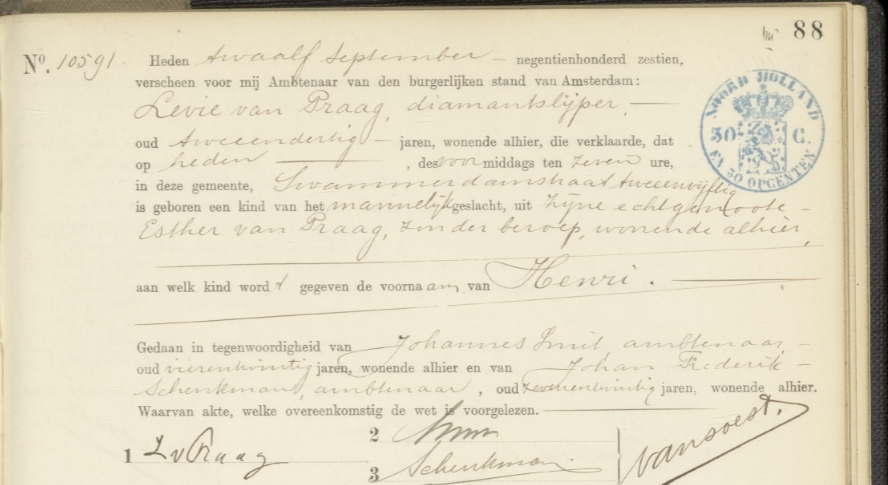 88
No. 10591. Heden twaalf September negentienhonderd zestien,
verscheen voor mij Ambtenaar van den burgerlijken stand van Amsterdam:
Levie van Praag, diamantslijper,
oud tweeendertig jaren, wonende alhier, die verklaarde, dat
op heden, des voor middags ten zeven ure,
in deze gemeente, Swammerdamstraat tweeenvijftig
is geboren een kind van het mannelijk geslacht, uit zijne echtgenoote
Esther van Praag, zonder beroep, wonende alhier,
aan welk kind wordt gegeven de voornaam van Henri.
Gedaan in tegenwoordigheid van Johannes Smit ambtenaar,
oud vierentwintig jaren, wonende alhier en van Johan Frederik
Schenkman, ambtenaar, oud zevenentwintig jaren, wonende alhier.
Waarvan akte, welke overeenkomstig de wet is voorgelezen.
1 L v Praag
2 Smit
3 Schenkman
van Soest.
NOORD HOLLAND
50 C.
EN 50 OPCENTEN